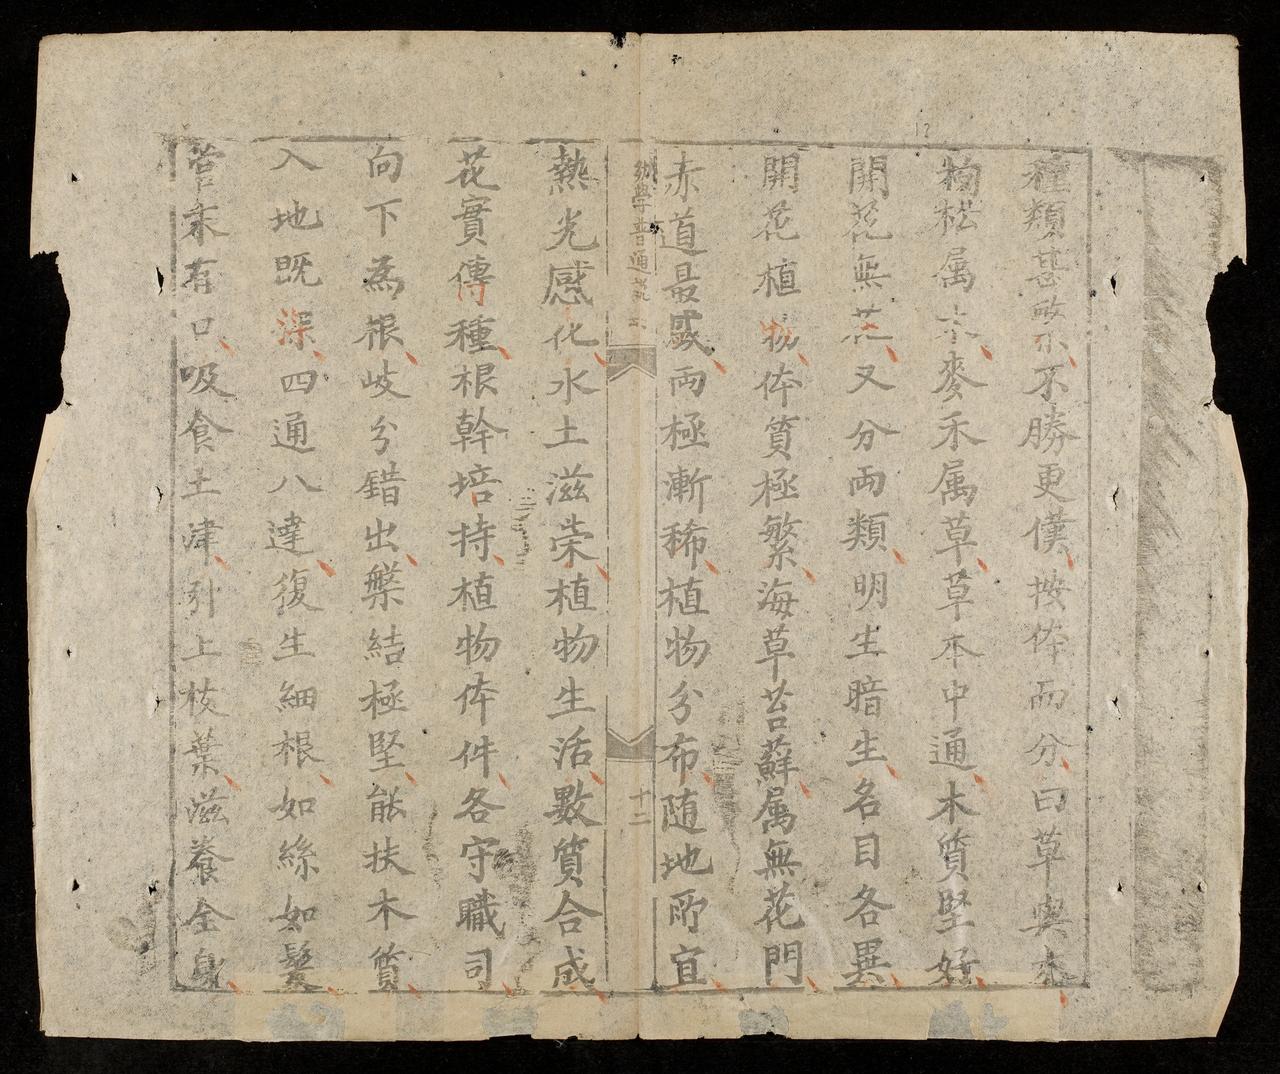 種類甚繁不勝更僕按体而分曰草與木
松属木麥禾属草草本中通木質堅好
開花無花又分両類明生暗生名目各異
開花植物体質極繁海草苔蘚属無花門
赤道最盛両極漸稀植物分布随地所宜
幼學普通説
十二
熱光感化水土滋荣植物生活數質合成
花實傳種根幹培持植物体件各守職司
向下為根歧分錯出槃結極堅能扶木質
入地既深四通八達復生細根如絲如髮
管末有口吸食土津引上枝葉滋養全身